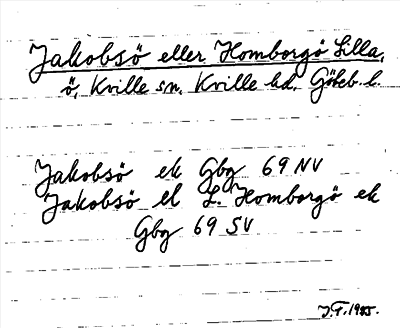 Jakobsö eller Homborgö Lilla,
ö, Kville sn. Kville hd. Göteb. l.
Jakobsö ek Gbg 69 NV
Jakobsö el L. Homborgö ek
Gbg 69 SV
J.F. 1955.